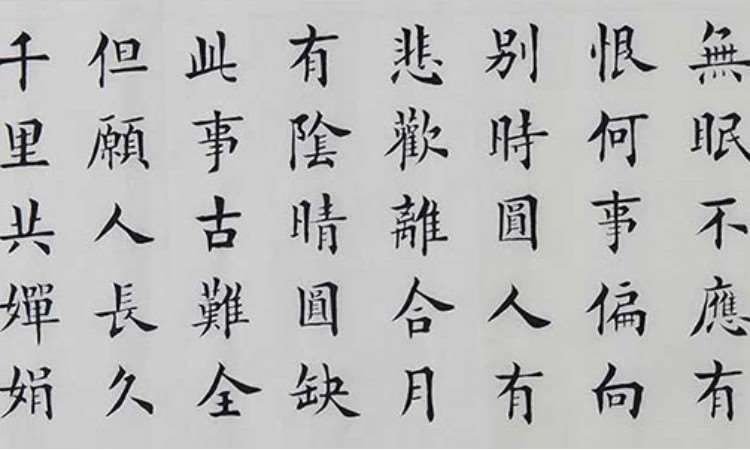 無眠不應有
恨何事偏向
别時圓人有
悲歡離合月
有陰晴圓缺
此事古難全
但願人長久
千里共嬋娟